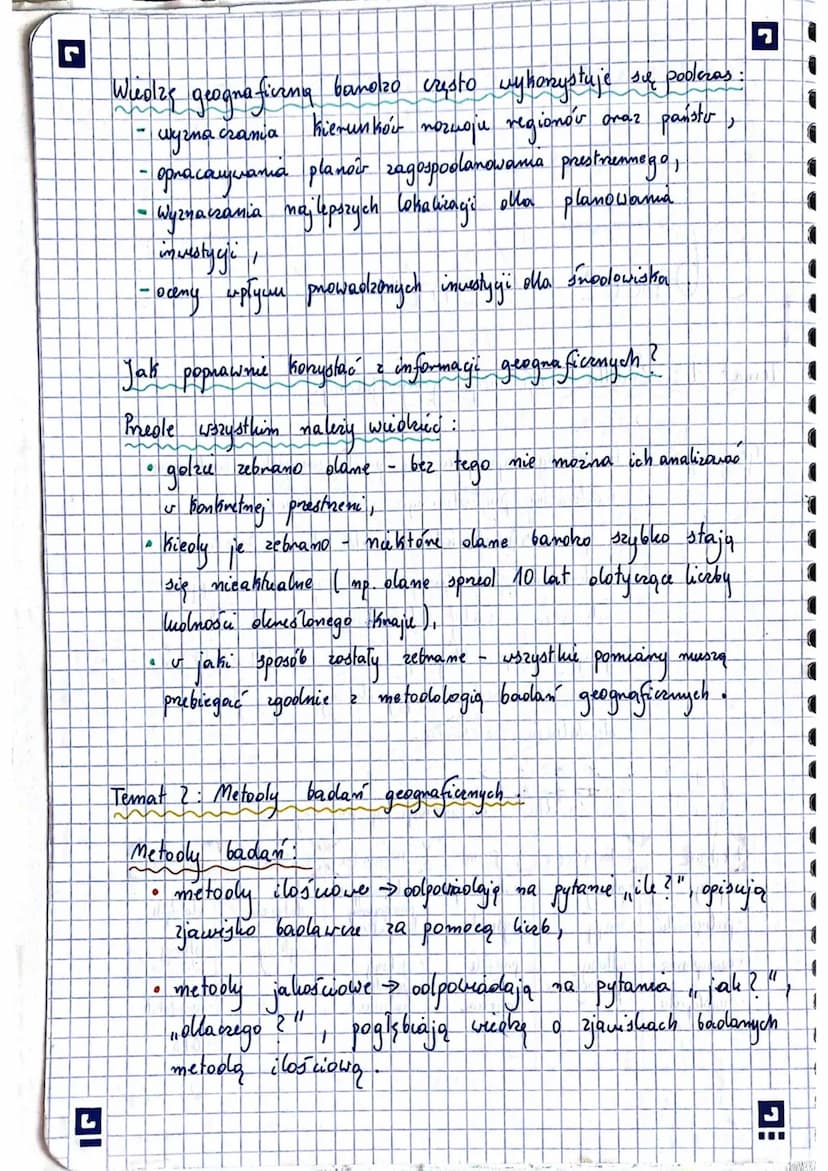 Wiedzę geograficzną bardzo często wykorzystuje się podczas:
- wyznaczania kierunków rozwoju regionów oraz państw,
- opracowywania planów zagospodarowania przestrzennego,
- wyznaczania najlepszych lokalizacji dla planowania
inwestycji,
- oceny wpływu prowadzonych inwestycji dla środowiska
Jak poprawnie korzystać z informacji geograficznych?
Przede wszystkim należy wiedzieć:
• gdzie zebrano dane - bez tego nie można ich analizować
w konkretnej przestrzeni,
• kiedy je zebrano - niektóre dane bardzo szybko stają
się nieaktualne (np. dane sprzed 10 lat dotyczące liczby
ludności określonego kraju),
• w jaki sposób zostały zebrane - wszystkie pomiary muszą
przebiegać zgodnie z metodologią badań geograficznych.
Temat 2: Metody badań geograficznych.
Metody badań:
• metody ilościowe → odpowiadają na pytanie „ile?", opisują
zjawisko badawcze za pomocą liczb,
• metody jakościowe → odpowiadają na pytania „jak?",
„dlaczego?", pogłębiają wiedzę o zjawiskach badanych
metodą ilościową.